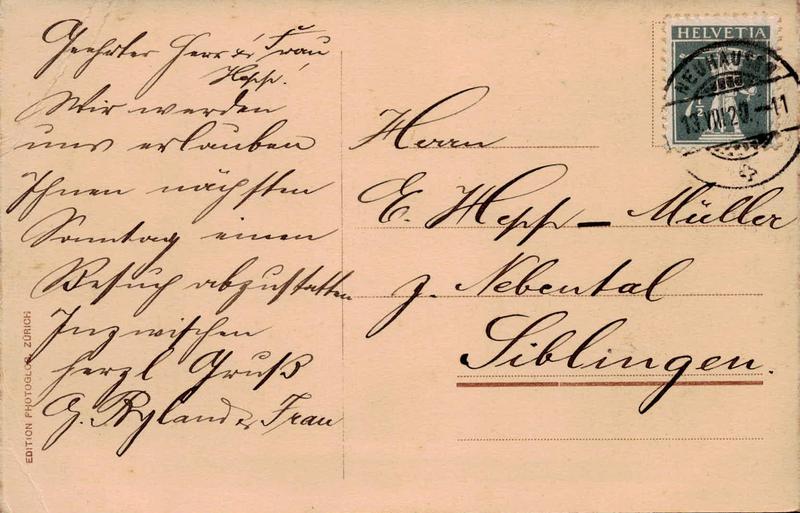 Geehrter Herr & Frau
Hepp!
Wir werden
uns erlauben
Ihnen nächsten
Sonntag einen
Besuch abzustatten
Inzwischen
herzl Gruß
G. Ryland & Frau
HELVETIA
NEUHAUSEN
13.VIII.20.-11
7½
Herrn
E. Hepp-Müller
z. Nebental
Siblingen.
EDITION PHOTOGLOB, ZÜRICH